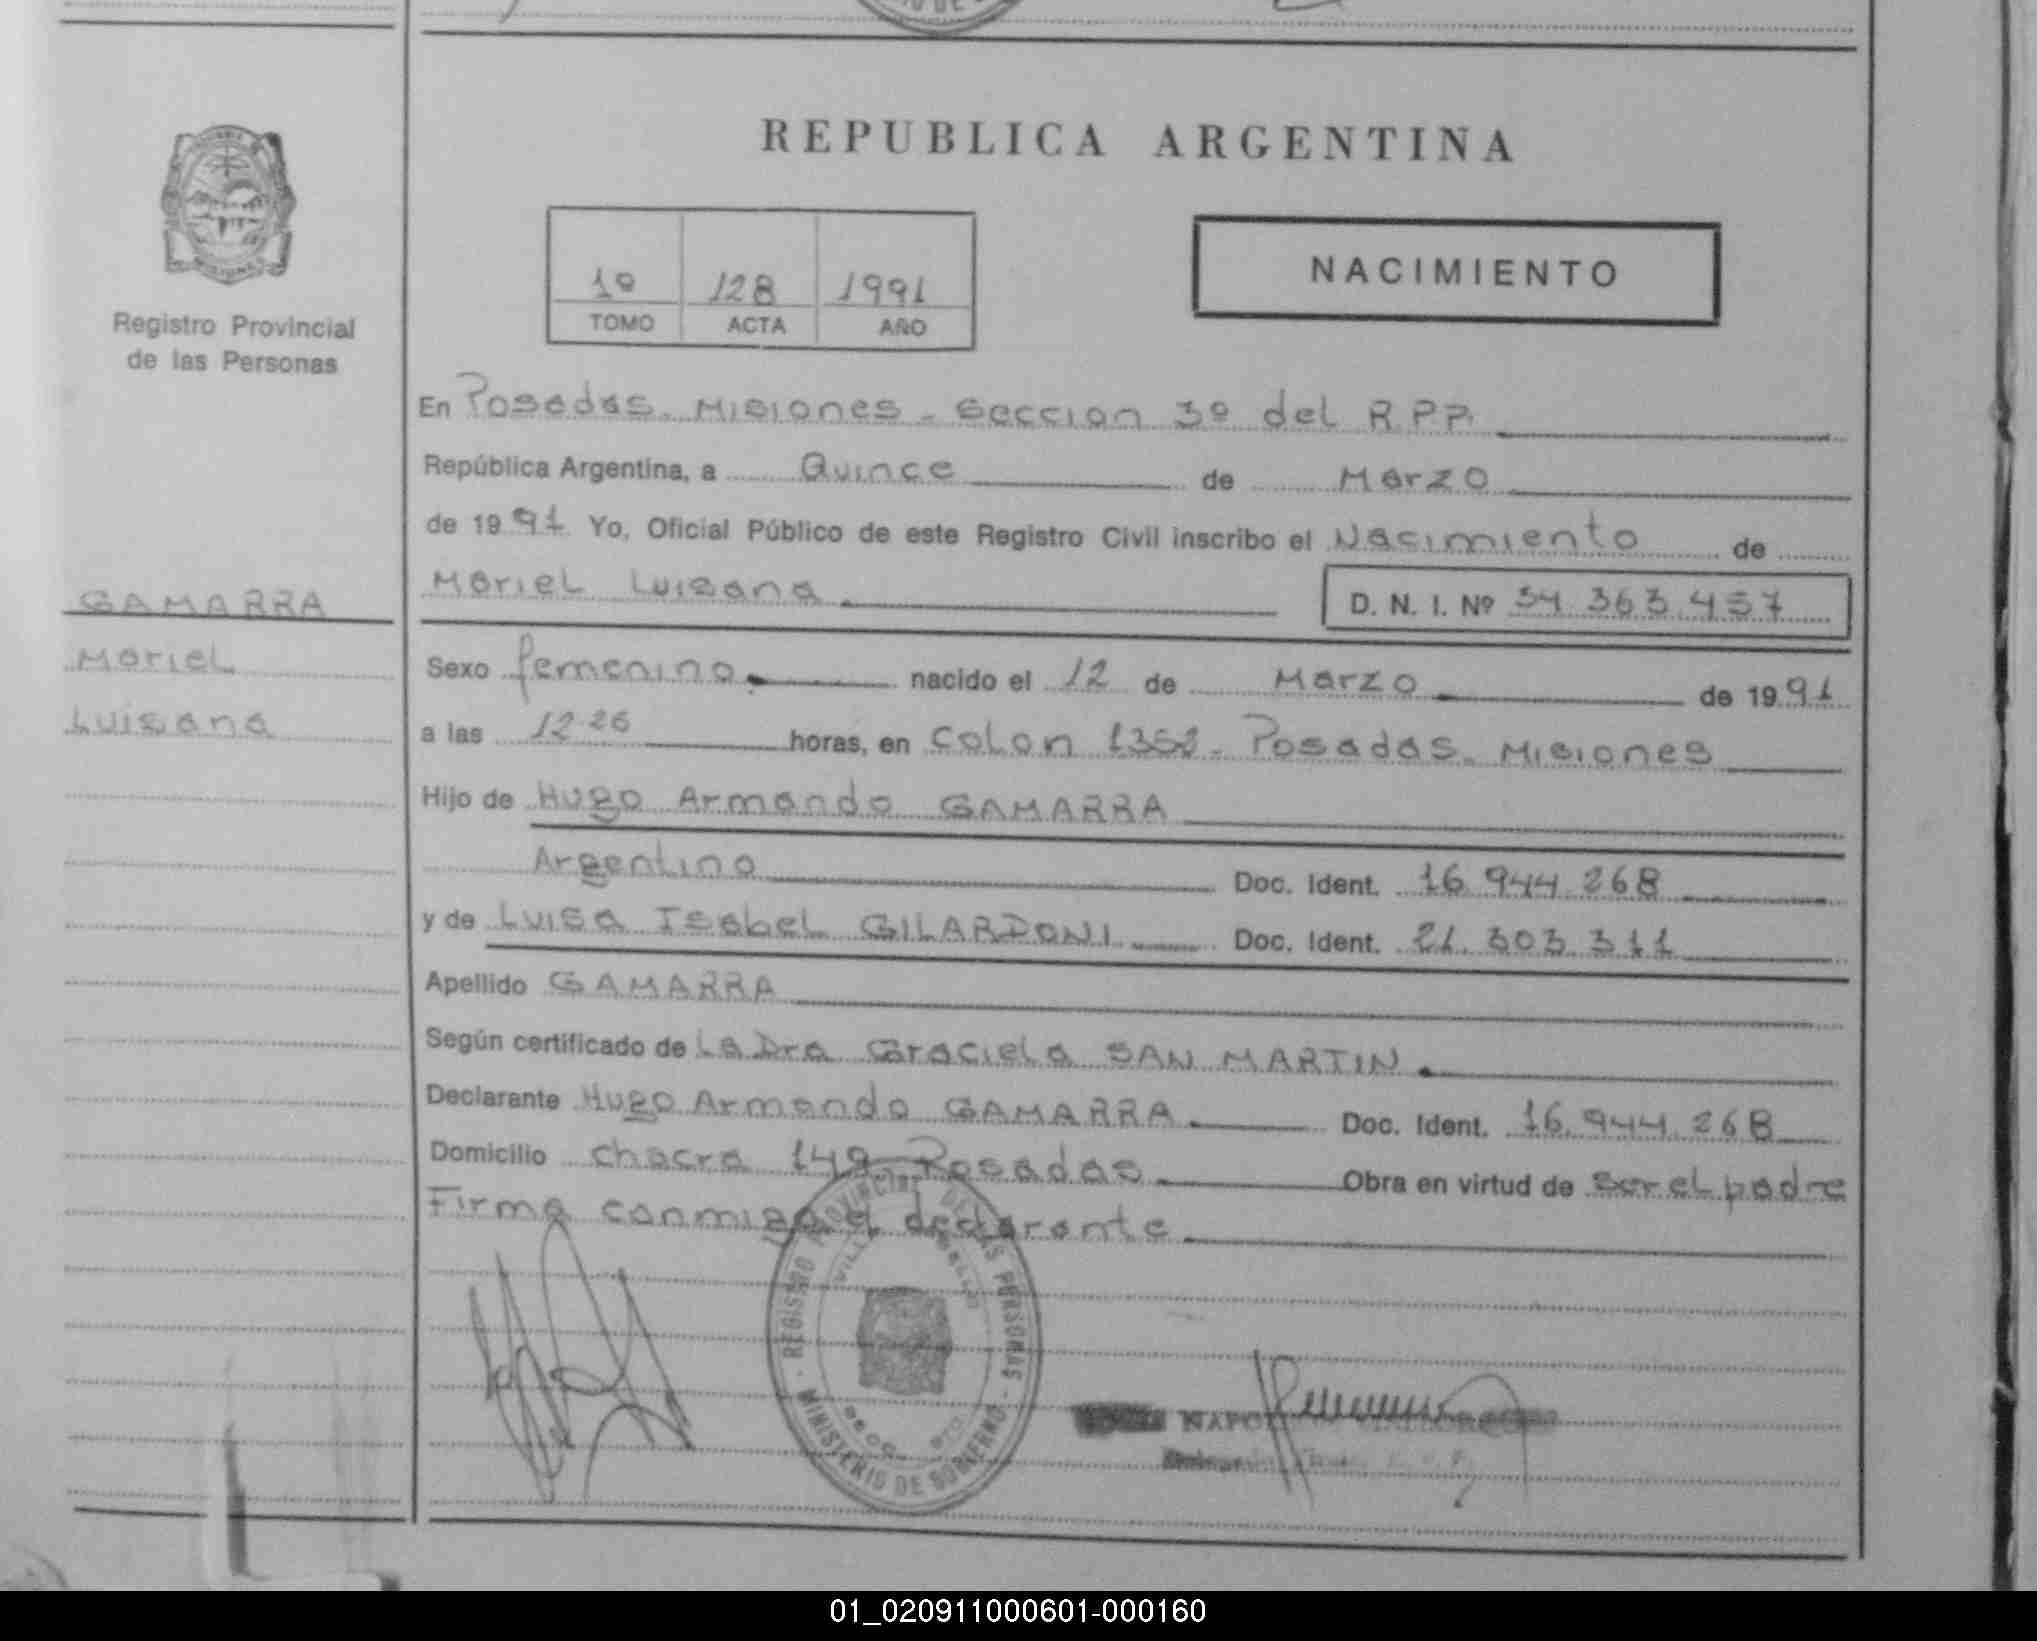 REPUBLICA ARGENTINA
1º 128 1991
TOMO ACTA AÑO
NACIMIENTO
MISIONES
Registro Provincial
de las Personas
GAMARRA
Mariel
Luisana
En Posadas. Misiones - Seccion 3º del R.P.P.
República Argentina, a Quince de Marzo
de 1991 Yo, Oficial Público de este Registro Civil inscribo el Nacimiento de
Mariel Luisana D. N. I. Nº 34 363.457
Sexo femenino nacido el 12 de Marzo de 1991
a las 12 26 horas, en Colon 1352 - Posadas - Misiones
Hijo de Hugo Armando GAMARRA
Argentino Doc. Ident. 16 944.268
y de Luisa Isabel GILARDONI Doc. Ident. 21.303.311
Apellido GAMARRA
Según certificado de La Dra Graciela SAN MARTIN
Declarante Hugo Armando GAMARRA Doc. Ident. 16.944.268
Domicilio chacra 149 Posadas Obra en virtud de ser el padre
Firma conmigo el declarante
REGISTRO PROVINCIAL DE LAS PERSONAS - MINISTERIO DE GOBIERNO -
01_020911000601-000160